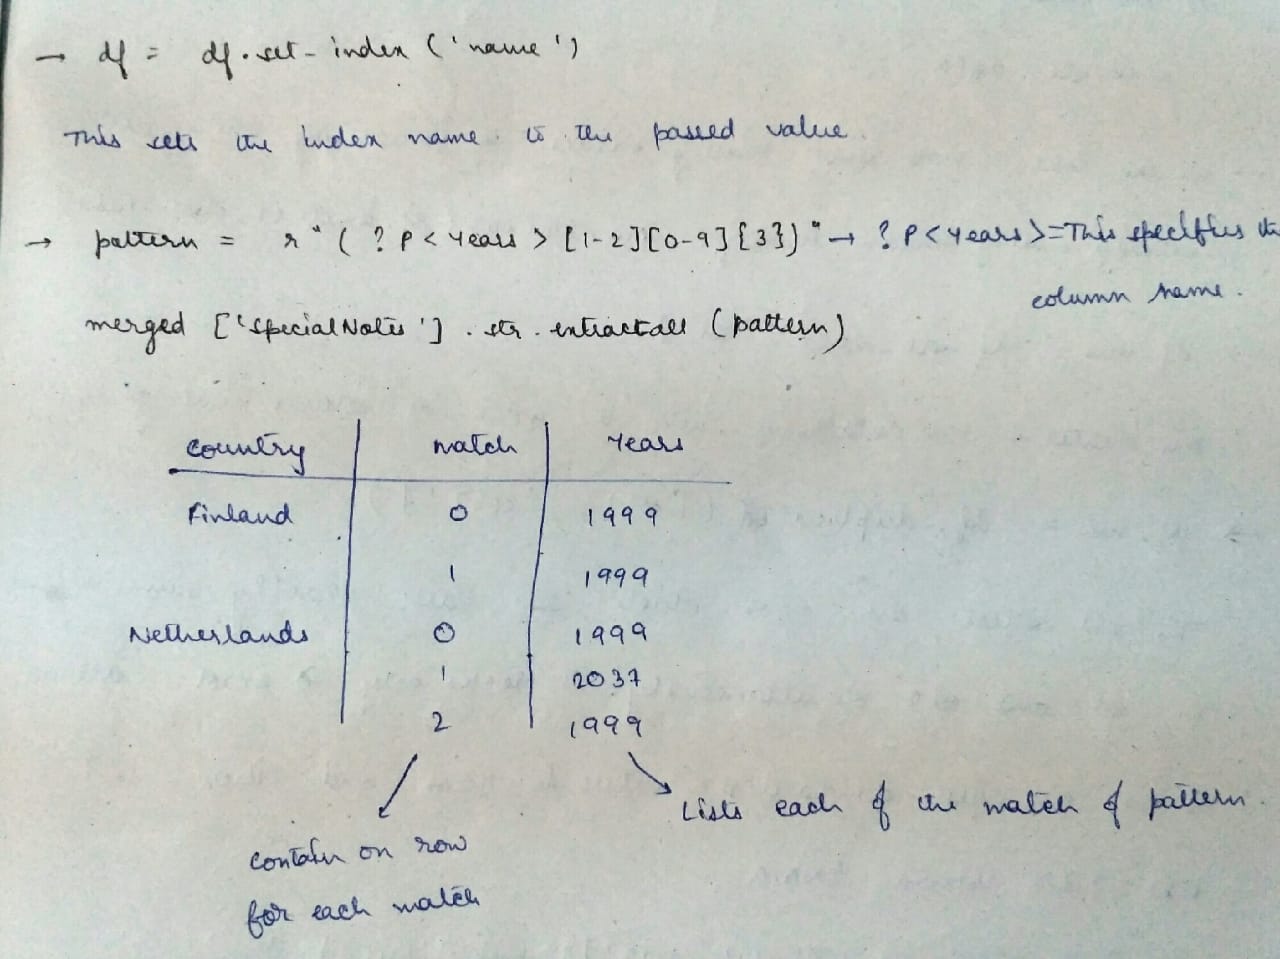 → df = df.set_index ('name')
This sets the index name to the passed value.
→ pattern = r"(?P<Years>[1-2][0-9]{3})" → ?P<Years>=This specifies the
column name.
merged ['SpecialNotes'].str.extractall (pattern)
Country match Years
Finland 0 1999
1 1999
Netherlands 0 1999
1 2037
2 1999
Lists each of the match of pattern.
Contain on row
for each match